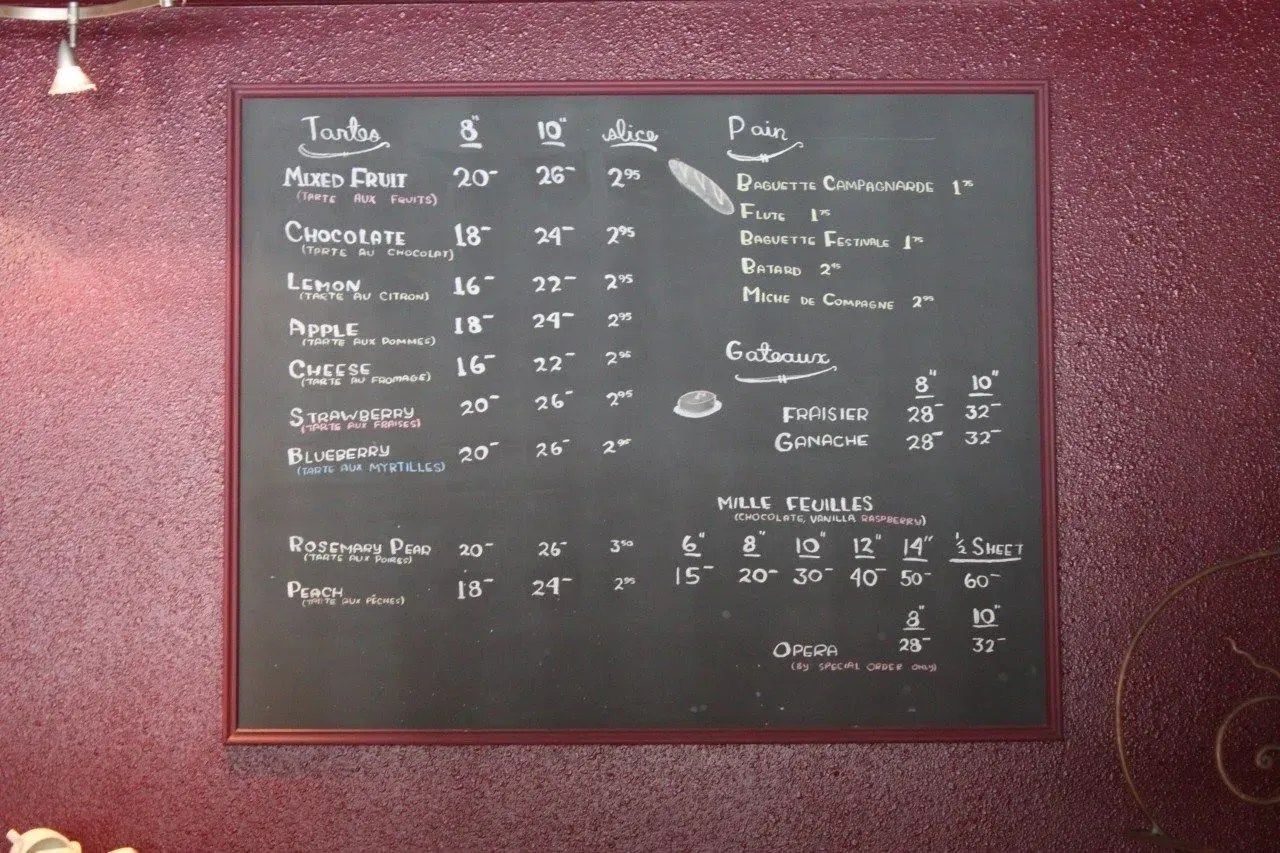 Tartes 8" 10" slice
MIXED FRUIT 20- 26- 2 95
(TARTE AUX FRUITS)
CHOCOLATE 18- 24- 2 95
(TARTE AU CHOCOLAT)
LEMON 16- 22- 2 95
(TARTE AU CITRON)
APPLE 18- 24- 2 95
(TARTE AUX POMMES)
CHEESE 16- 22- 2 95
(TARTE AU FROMAGE)
STRAWBERRY 20- 26- 2 95
(TARTE AUX FRAISES)
BLUEBERRY 20- 26- 2 95
(TARTE AUX MYRTILLES)
ROSEMARY PEAR 20- 26- 3 50
(TARTE AUX POIRES)
PEACH 18- 24- 2 95
(TARTE AUX PÊCHES)
Pain
BAGUETTE CAMPAGNARDE 1 75
FLUTE 1 75
BAGUETTE FESTIVALE 1 75
BATARD 2 45
MICHE DE COMPAGNE 2 95
Gateaux
8" 10"
FRAISIER 28- 32-
GANACHE 28- 32-
MILLE FEUILLES
(CHOCOLATE, VANILLA RASPBERRY)
6" 8" 10" 12" 14" 1/2 SHEET
15- 20- 30- 40- 50- 60-
8" 10"
OPERA 28- 32-
(BY SPECIAL ORDER ONLY)